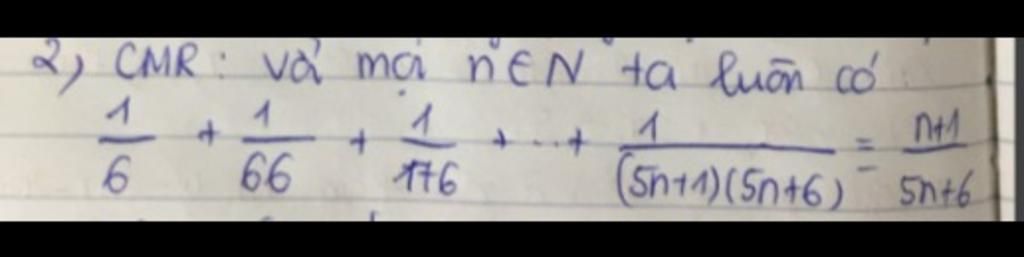 2) CMR: với mọi n∈N ta luôn có
1/6 + 1/66 + 1/176 + ... + 1/((5n+1)(5n+6)) = (n+1)/(5n+6)